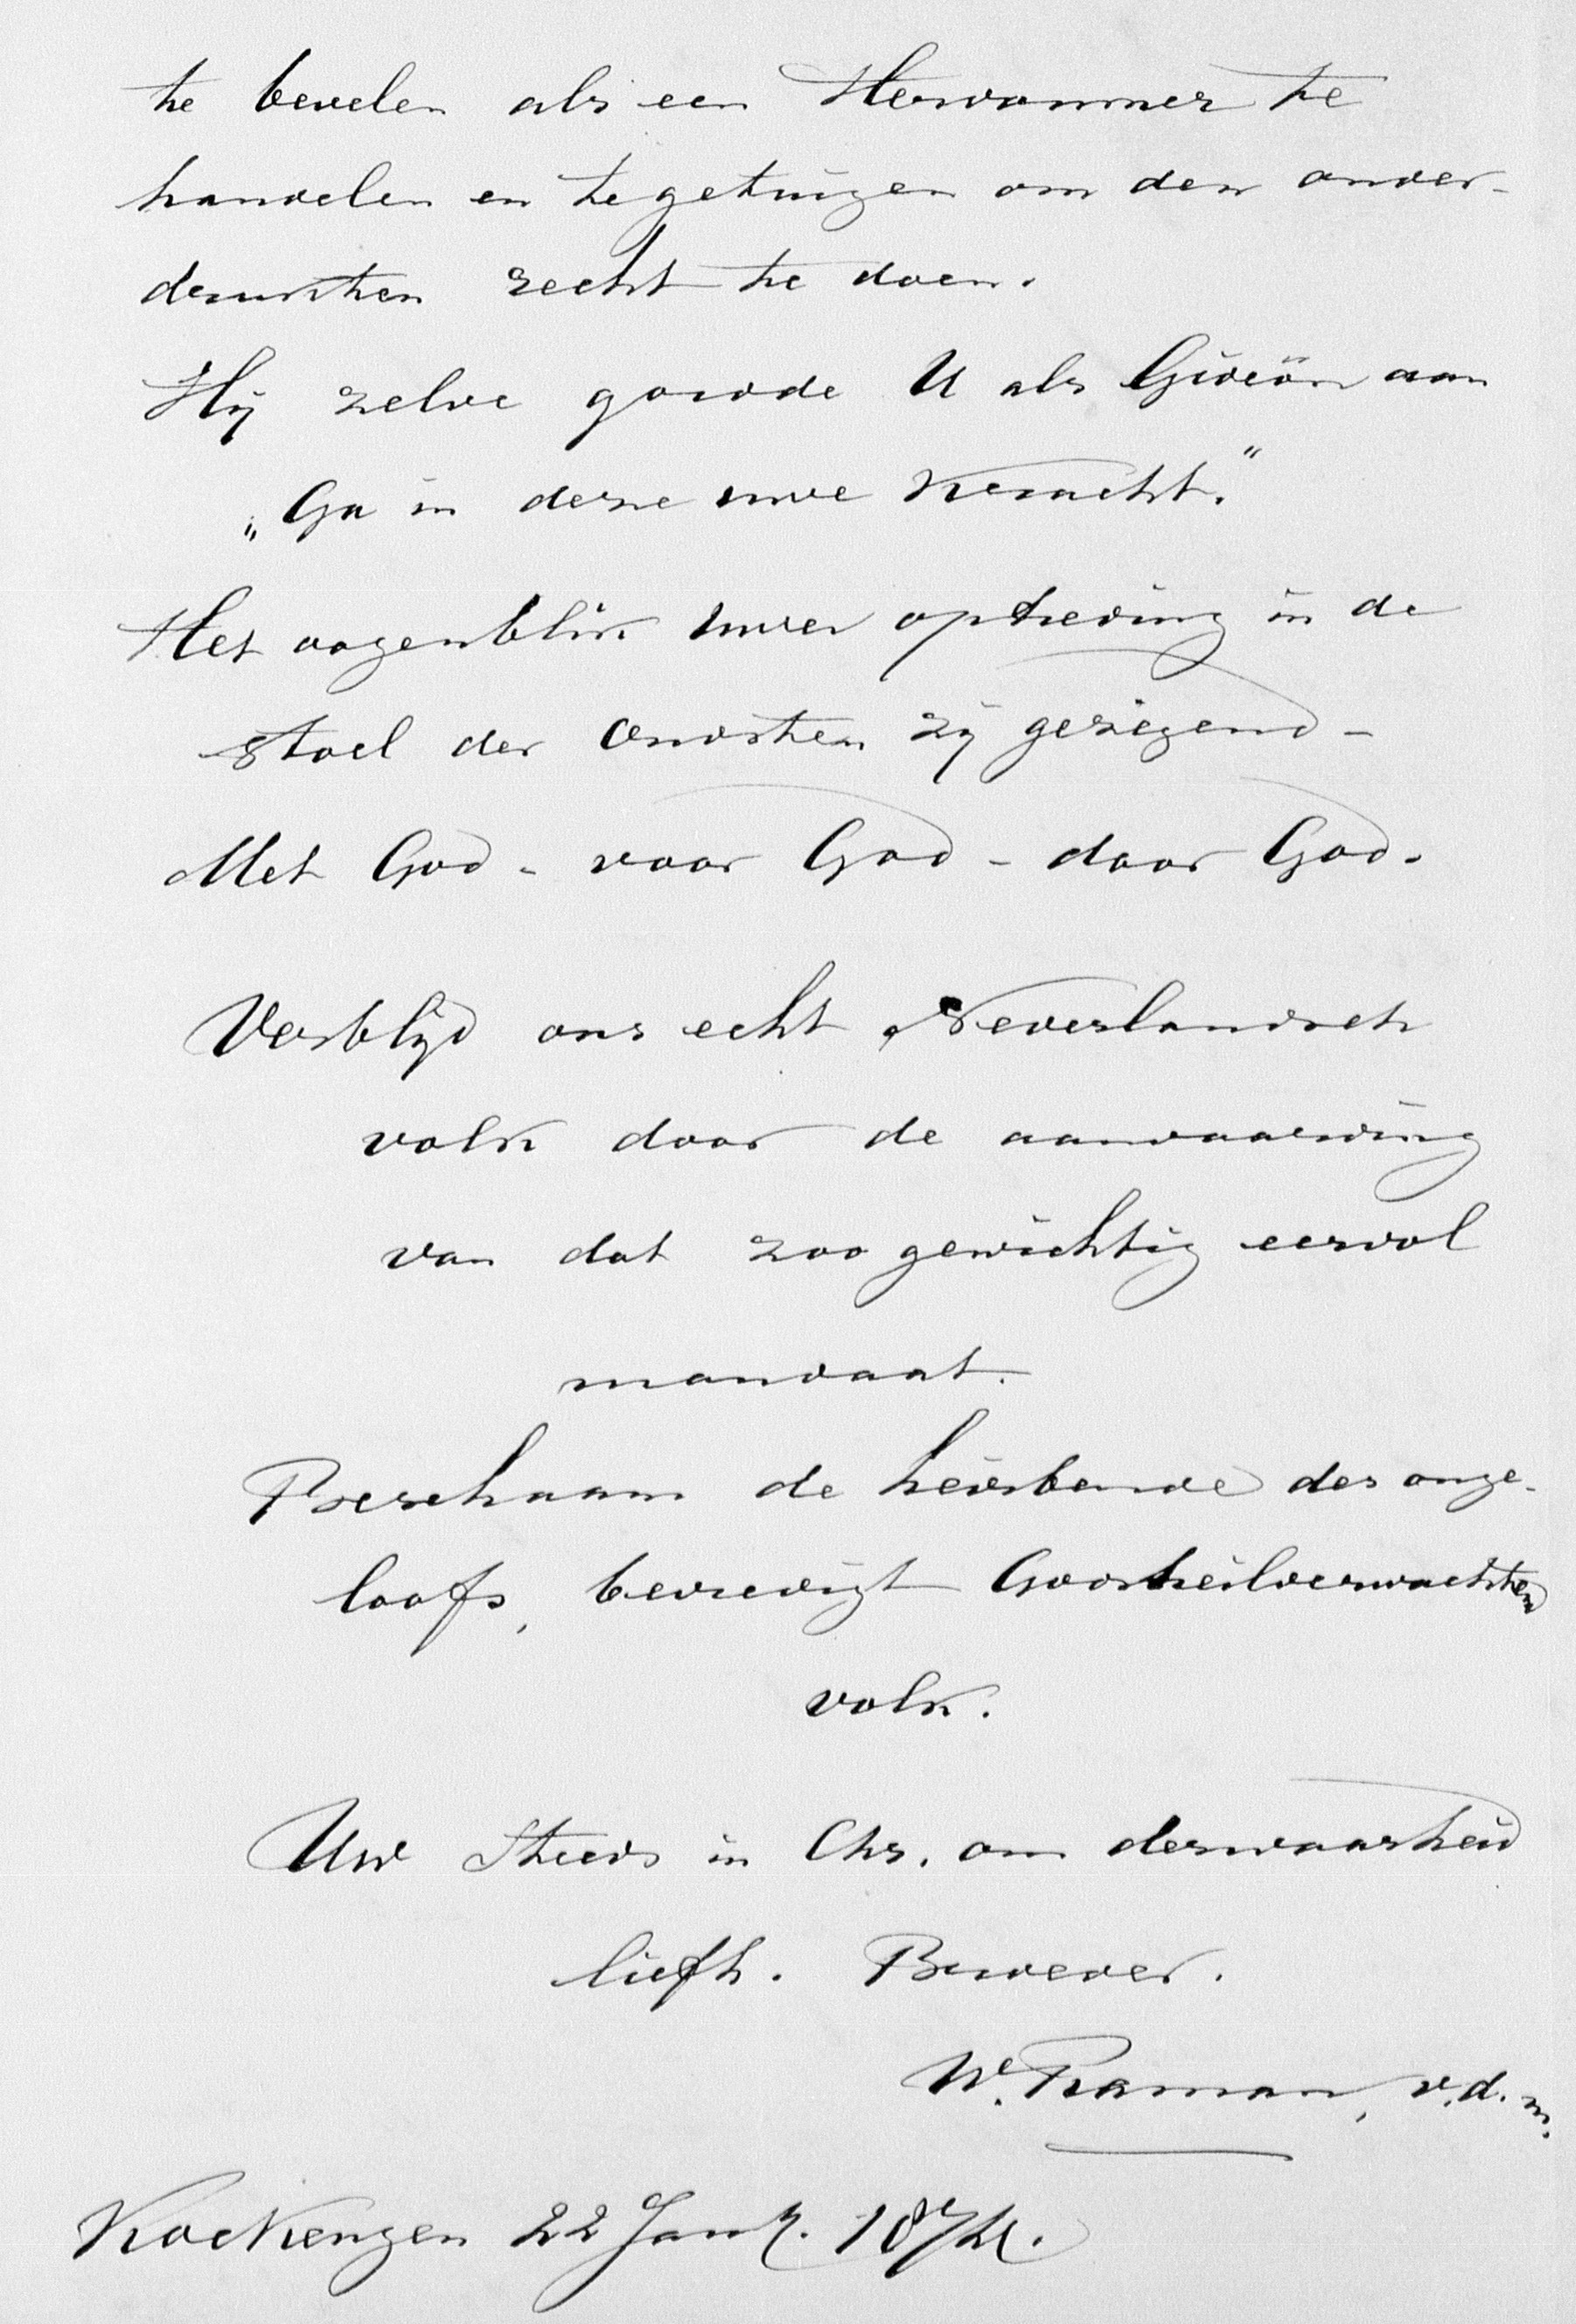 te bevelen als een Hervormer te
handelen en te getuigen om den onder-
drukten recht te doen.
Hij zelve gorde U als Gideön aan
„Ga in deze uwe kracht."
Het oogenblik uwer optreding in de
stoel der Oudsten zij gezegend -
Met God - voor God - door God.
Verblijd ons echt Nederlandsch
volk door de aanvaarding
van dat zoo gewichtig eervol
mandaat.
Beschaam de heirbende des onge-
loofs, bevredigt Godsheilverwachtend
volk.
Uw steeds in Chr. om derwaarheid
liefh. Broeder.
W. Raman, v.d.m.
Kockengen 22 Jan. 1874.